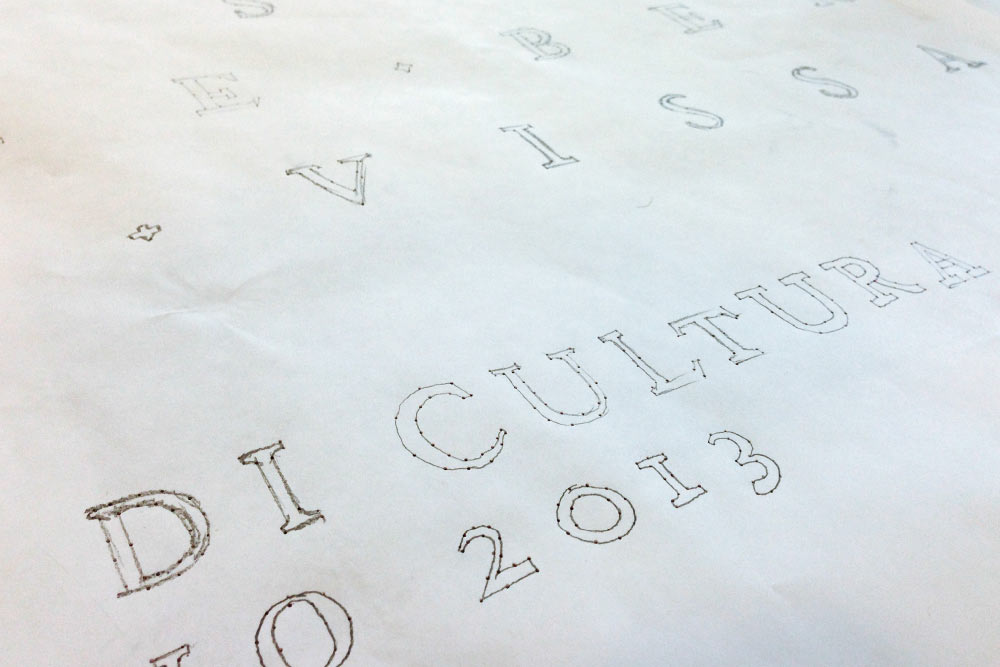 S
E · BE
· VISSA
DI CULTURA
O 2013